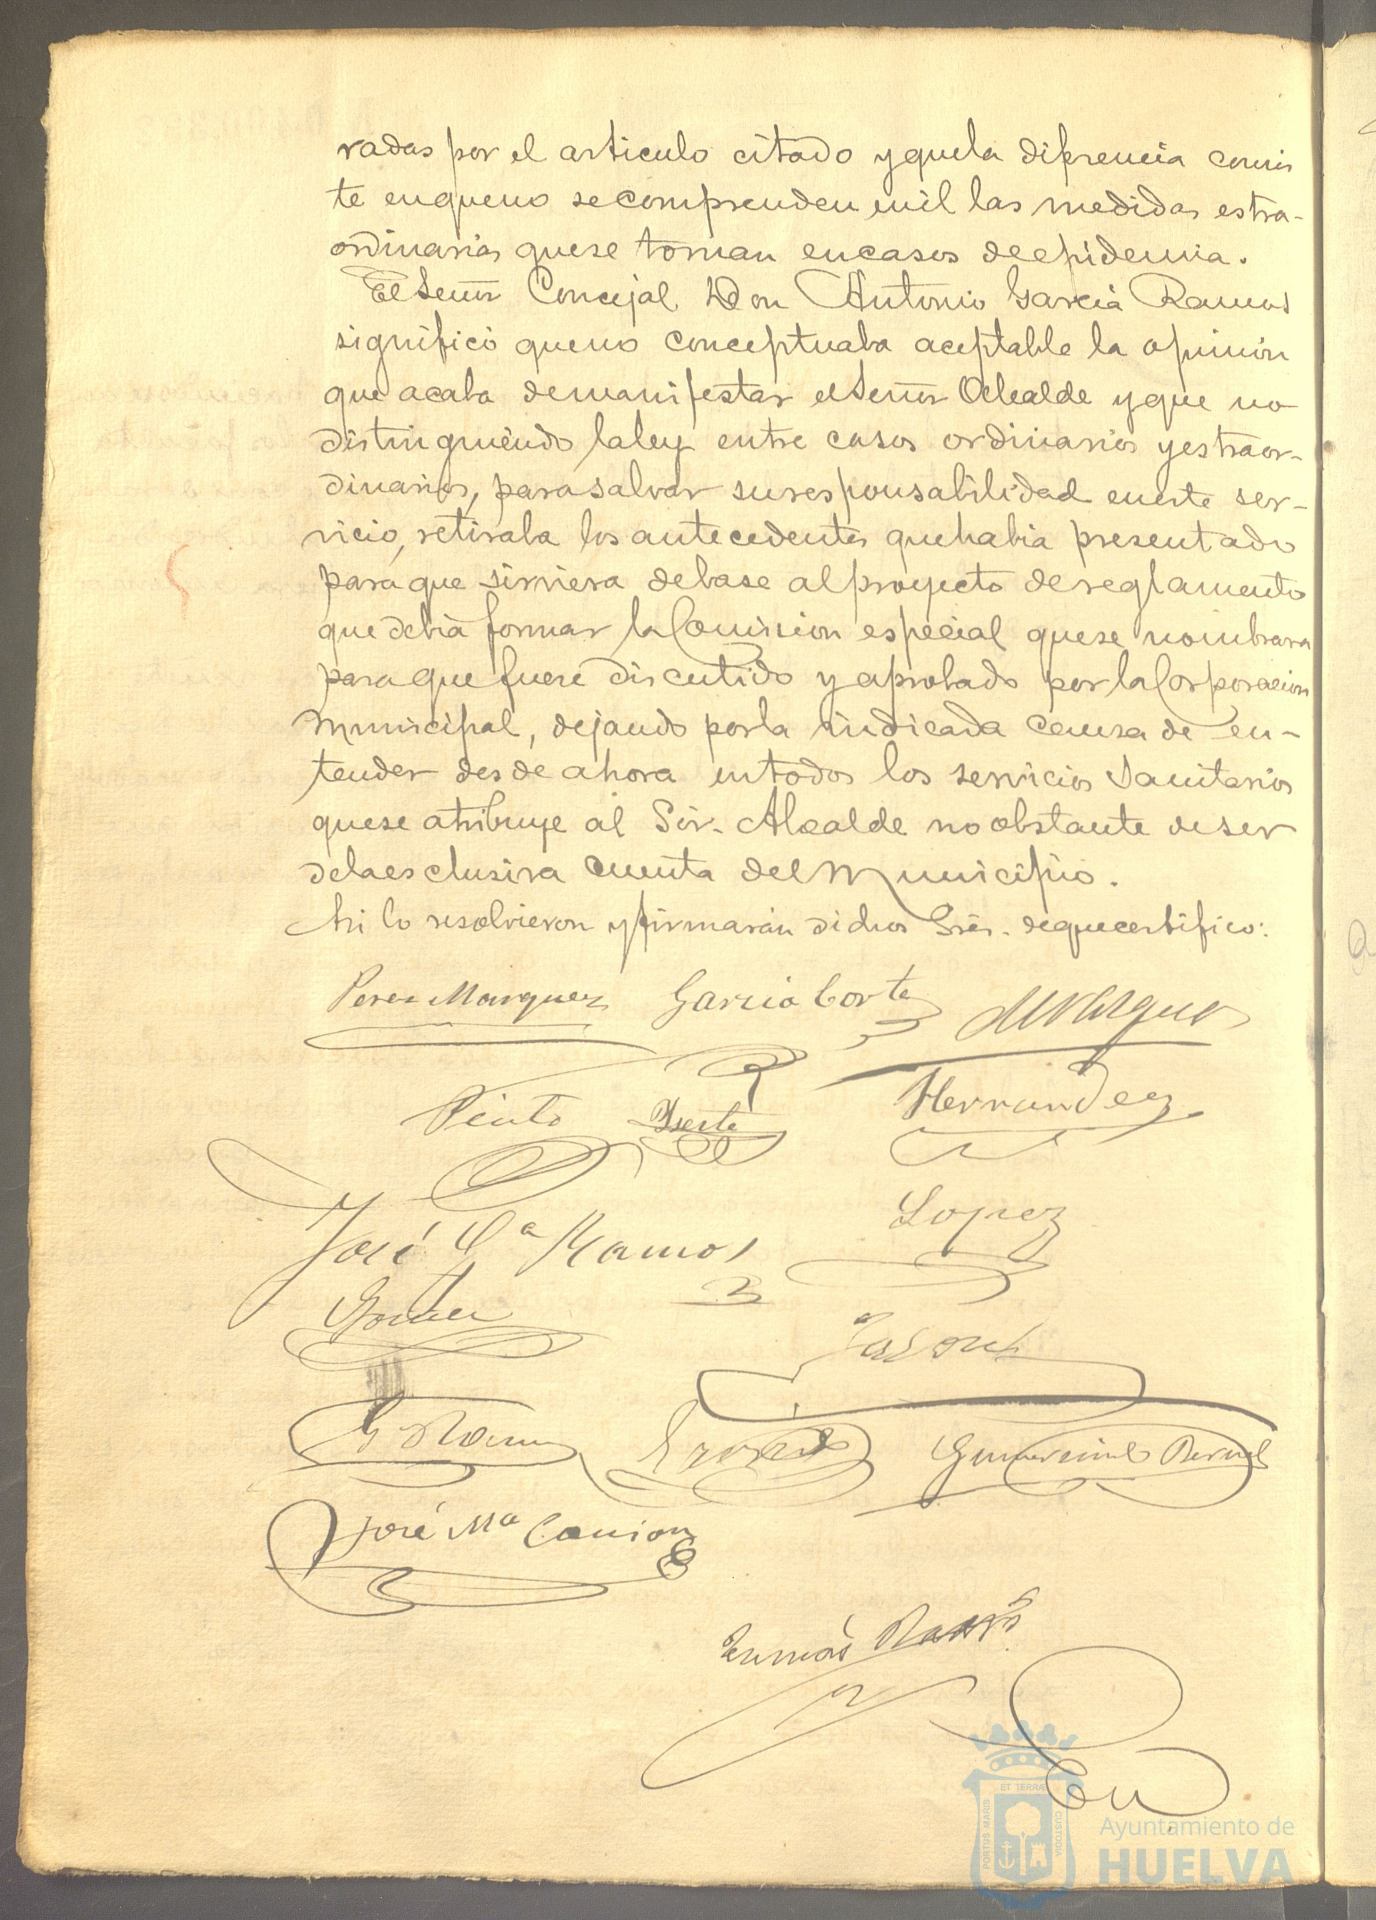 radas por el articulo citado y que la diferencia consis
te en que no se comprenden en el las medidas estra-
ordinarias que se toman en casos de epidemia.
El Señor Concejal Don Antonio Garcia Ramos
significó que no conceptuaba aceptable la opinion
que acaba de manifestar el Señor Alcalde y que no
distinguiendo la ley entre casos ordinarios y estraor-
dinarios, para salvar su responsabilidad en este ser-
vicio, retiraba los antecedentes que habia presentado
para que sirviera de base al proyecto de reglamento
que debia formar la Comision especial que se nombrara
para que fuere discutido y aprobado por la Corporacion
Municipal, dejando por la indicada causa de en-
tender desde ahora en todos los servicios Sanitarios
que se atribuye al Sór. Alcalde no obstante de ser
de la esclusiva cuenta del Municipio.
Asi lo resolvieron y firmarán dichos Sres. de que certifico:
Perez Marquez Garcia Corte
Pinto Hernandez
José Gª Ramos Lopez
Gumersindo Bernal
José Mª Cancion
PORTUS MARIS
ET TERRAE
CUSTODIA
Ayuntamiento de
HUELVA